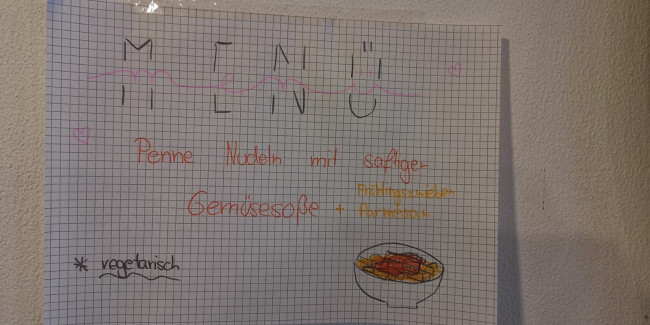 MENÜ
Penne Nudeln mit saftiger
Gemüsesoße + Frühlingszwiebeln
Parmesan
* vegetarisch